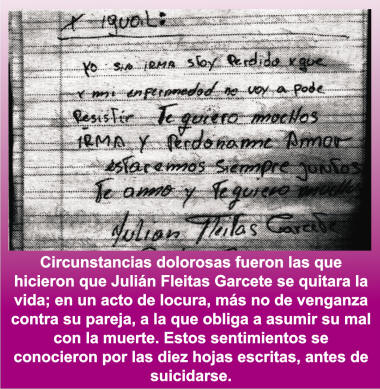 x igual:
yo sin IRMA stoy Perdido x que
x mi enfermedad no voy a pode
Resistir Te quiero muchos
IRMA y Perdoname Amor
estaremos siempre juntos
Te amo y Te quiero muchos
Julian Fleitas Garcete
Circunstancias dolorosas fueron las que
hicieron que Julián Fleitas Garcete se quitara la
vida; en un acto de locura, más no de venganza
contra su pareja, a la que obliga a asumir su mal
con la muerte. Estos sentimientos se
conocieron por las diez hojas escritas, antes de
suicidarse.